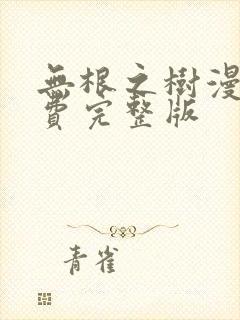 無根之樹漫
費完整版
青雀